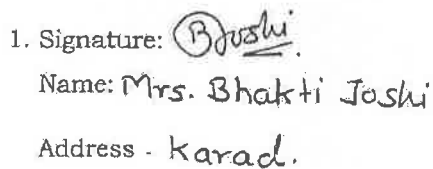 1. Signature: BJoshi.
Name: Mrs. Bhakti Joshi
Address - Karad.